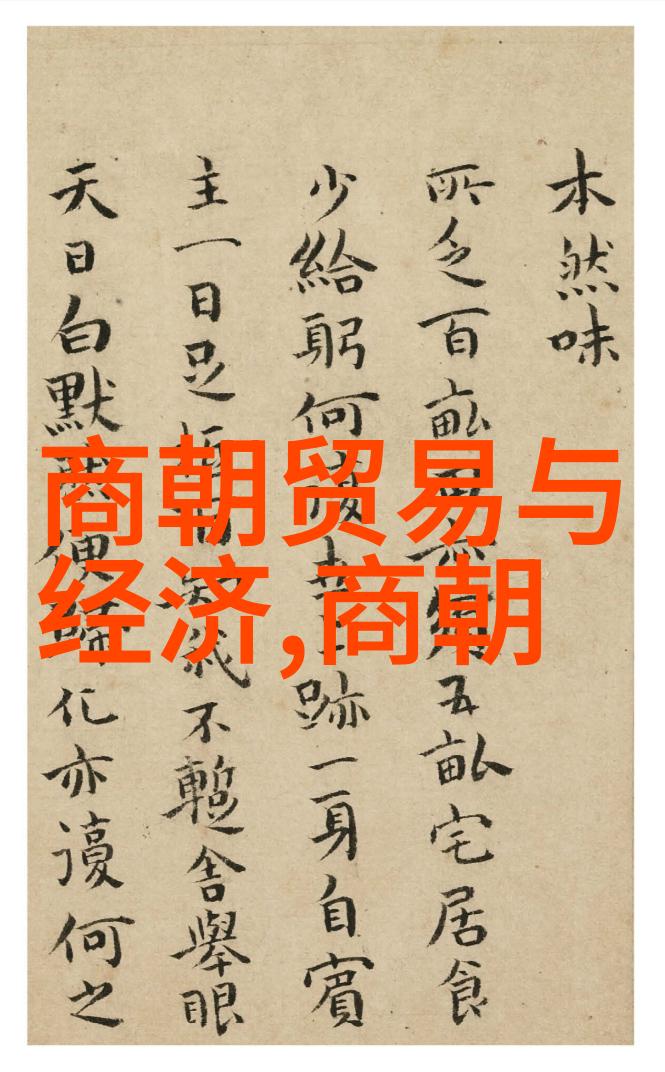 商朝贸易与
经济,商朝
本然味
所乏百畝田無用五畝宅居食
少給躬何復去上跡一身自賓
主一日足 不蹔舍舉眼
天日白默 化亦復何之